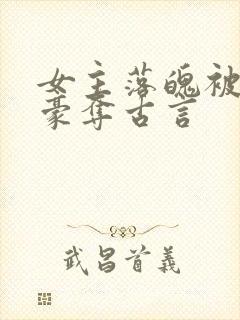 女主落魄被
豪夺古言
武昌首義